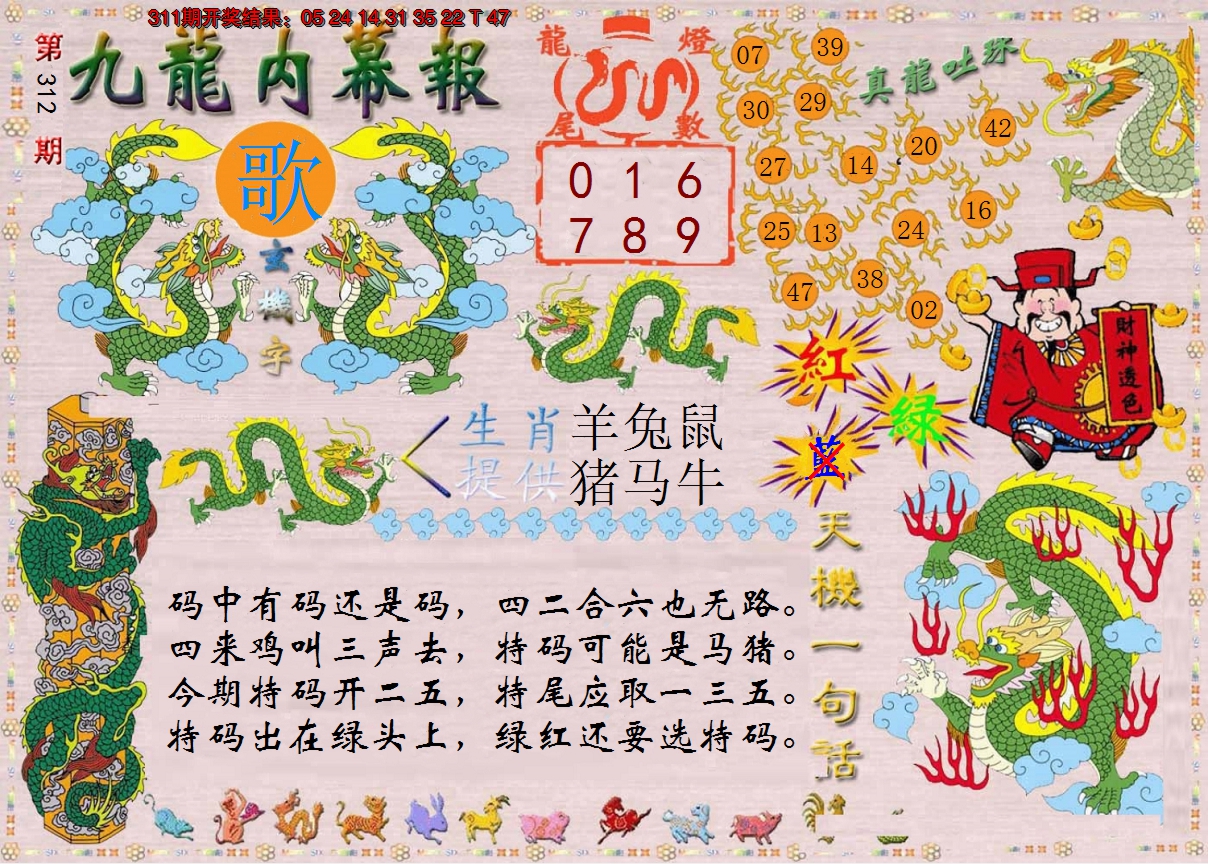 311期开奖结果：05 24 14 31 35 22 T 47
第312期
九龍内幕報
歌
玄機字
龍燈
尾數
0 1 6
7 8 9
真龍吐珠
07 39
30 29
27 14 20 42
25 13 24 16
47 38 02
財神透色
紅
綠
藍
生肖 羊兔鼠
提供 猪马牛
天機一句話
码中有码还是码，四二合六也无路。
四来鸡叫三声去，特码可能是马猪。
今期特码开二五，特尾应取一三五。
特码出在绿头上，绿红还要选特码。